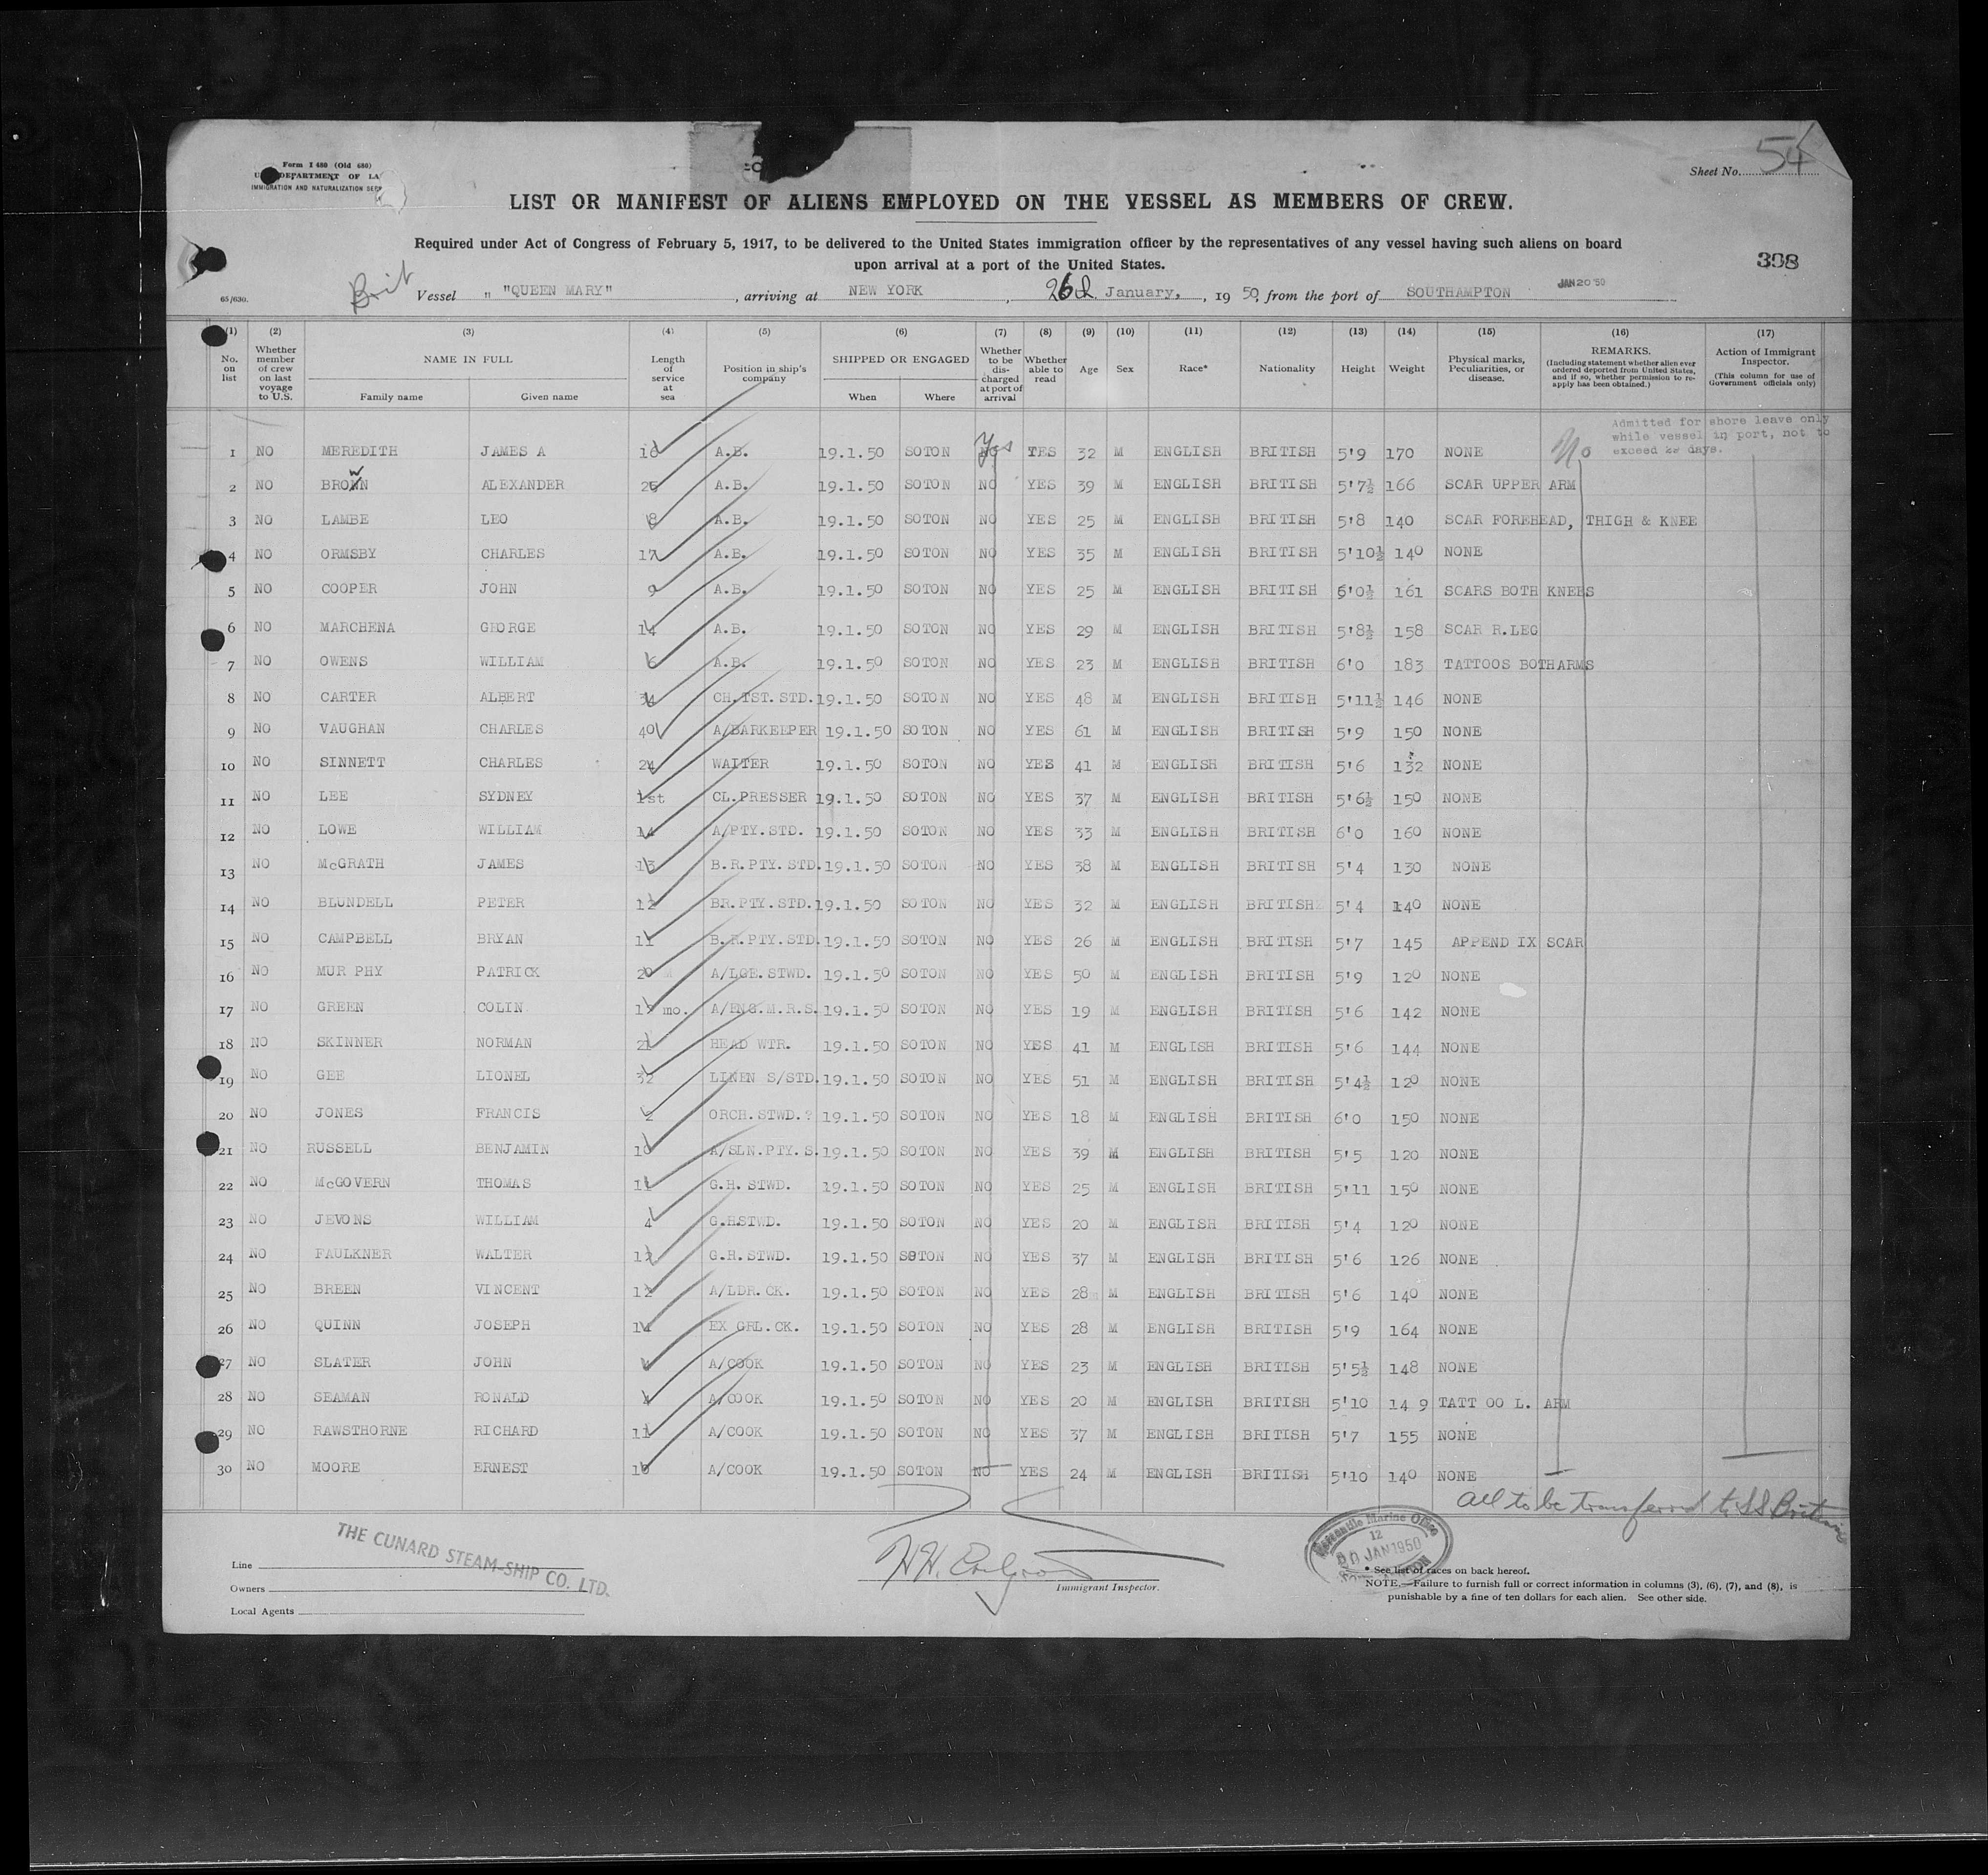 Form I 480 (Old 680)
DEPARTMENT OF LA
IMMIGRATION AND NATURALIZATION SER
Sheet No. 54
LIST OR MANIFEST OF ALIENS EMPLOYED ON THE VESSEL AS MEMBERS OF CREW.
Required under Act of Congress of February 5, 1917, to be delivered to the United States immigration officer by the representatives of any vessel having such aliens on board
upon arrival at a port of the United States.
398
65/630. Brit Vessel " "QUEEN MARY", arriving at NEW YORK, January, 1950, from the port of SOUTHAMPTON JAN 20 '50
(1) No. on list
(2) Whether member of crew on last voyage to U.S.
(3) NAME IN FULL Family name Given name
(4) Length of service at sea
(5) Position in ship's company
(6) SHIPPED OR ENGAGED When Where
(7) Whether to be discharged at port of arrival
(8) Whether able to read
(9) Age
(10) Sex
(11) Race*
(12) Nationality
(13) Height
(14) Weight
(15) Physical marks, Peculiarities, or disease.
(16) REMARKS. (Including statement whether alien ever ordered deported from United States, and if so, whether permission to reapply has been obtained.)
(17) Action of Immigrant Inspector. (This column for use of Government officials only)
Admitted for shore leave only
while vessel in port, not to
exceed days.
1 NO MEREDITH JAMES A A.B. 19.1.50 SOTON Yes YES 32 M ENGLISH BRITISH 5'9 170 NONE No
2 NO BROWN ALEXANDER A.B. 19.1.50 SOTON NO YES 39 M ENGLISH BRITISH 5'7½ 166 SCAR UPPER ARM
3 NO LAMBE LEO 8 A.B. 19.1.50 SOTON NO YES 25 M ENGLISH BRITISH 5'8 140 SCAR FOREHEAD, THIGH & KNEE
4 NO ORMSBY CHARLES 17 A.B. 19.1.50 SOTON NO YES 35 M ENGLISH BRITISH 5'10½ 140 NONE
5 NO COOPER JOHN 9 A.B. 19.1.50 SOTON NO YES 25 M ENGLISH BRITISH 6'0½ 161 SCARS BOTH KNEES
6 NO MARCHENA GEORGE 14 A.B. 19.1.50 SOTON NO YES 29 M ENGLISH BRITISH 5'8½ 158 SCAR R.LEG
7 NO OWENS WILLIAM 6 A.B. 19.1.50 SOTON NO YES 23 M ENGLISH BRITISH 6'0 183 TATTOOS BOTHARMS
8 NO CARTER ALBERT 34 CH.TST.STD. 19.1.50 SOTON NO YES 48 M ENGLISH BRITISH 5'11½ 146 NONE
9 NO VAUGHAN CHARLES 40 A/BARKEEPER 19.1.50 SOTON NO YES 61 M ENGLISH BRITISH 5'9 150 NONE
10 NO SINNETT CHARLES 24 WAITER 19.1.50 SOTON NO YES 41 M ENGLISH BRITISH 5'6 132 NONE
11 NO LEE SYDNEY 1st CL.PRESSER 19.1.50 SOTON NO YES 37 M ENGLISH BRITISH 5'6½ 150 NONE
12 NO LOWE WILLIAM 14 A/PTY.STD. 19.1.50 SOTON NO YES 33 M ENGLISH BRITISH 6'0 160 NONE
13 NO McGRATH JAMES 13 B.R.PTY.STD. 19.1.50 SOTON NO YES 38 M ENGLISH BRITISH 5'4 130 NONE
14 NO BLUNDELL PETER 12 BR.PTY.STD. 19.1.50 SOTON NO YES 32 M ENGLISH BRITISH 5'4 140 NONE
15 NO CAMPBELL BRYAN 11 B.R.PTY.STD. 19.1.50 SOTON NO YES 26 M ENGLISH BRITISH 5'7 145 APPEND IX SCAR
16 NO MUR PHY PATRICK 20 A/LGE.STWD. 19.1.50 SOTON NO YES 50 M ENGLISH BRITISH 5'9 120 NONE
17 NO GREEN COLIN mo. A/ENG.M.R.S. 19.1.50 SOTON NO YES 19 M ENGLISH BRITISH 5'6 142 NONE
18 NO SKINNER NORMAN 21 HEAD WTR. 19.1.50 SOTON NO YES 41 M ENGLISH BRITISH 5'6 144 NONE
19 NO GEE LIONEL 32 LINEN S/STD. 19.1.50 SOTON NO YES 51 M ENGLISH BRITISH 5'4½ 120 NONE
20 NO JONES FRANCIS 2 ORCH.STWD.? 19.1.50 SOTON NO YES 18 M ENGLISH BRITISH 6'0 150 NONE
21 NO RUSSELL BENJAMIN 10 A/SLN.PTY.S. 19.1.50 SOTON NO YES 39 M ENGLISH BRITISH 5'5 120 NONE
22 NO McGOVERN THOMAS 11 G.H. STWD. 19.1.50 SOTON NO YES 25 M ENGLISH BRITISH 5'11 150 NONE
23 NO JEVONS WILLIAM 4 G.HSTWD. 19.1.50 SOTON NO YES 20 M ENGLISH BRITISH 5'4 120 NONE
24 NO FAULKNER WALTER 12 G.H. STWD. 19.1.50 SOTON NO YES 37 M ENGLISH BRITISH 5'6 126 NONE
25 NO BREEN VINCENT 12 A/LDR.CK. 19.1.50 SOTON NO YES 28 M ENGLISH BRITISH 5'6 140 NONE
26 NO QUINN JOSEPH 14 EX GRL.CK. 19.1.50 SOTON NO YES 28 M ENGLISH BRITISH 5'9 164 NONE
27 NO SLATER JOHN A/COOK 19.1.50 SOTON NO YES 23 M ENGLISH BRITISH 5'5½ 148 NONE
28 NO SEAMAN RONALD 4 A/COOK 19.1.50 SOTON NO YES 20 M ENGLISH BRITISH 5'10 14 9 TATT OO L. ARM
29 NO RAWSTHORNE RICHARD 11 A/COOK 19.1.50 SOTON NO YES 37 M ENGLISH BRITISH 5'7 155 NONE
30 NO MOORE ERNEST 10 A/COOK 19.1.50 SOTON NO YES 24 M ENGLISH BRITISH 5'10 140 NONE
All to be transferred to SS
Line THE CUNARD STEAM-SHIP CO. LTD.
Owners
Local Agents
Immigrant Inspector.
Mercantile Marine Office
12
JAN 1950
* See list of races on back hereof.
NOTE.—Failure to furnish full or correct information in columns (3), (6), (7), and (8), is
punishable by a fine of ten dollars for each alien. See other side.